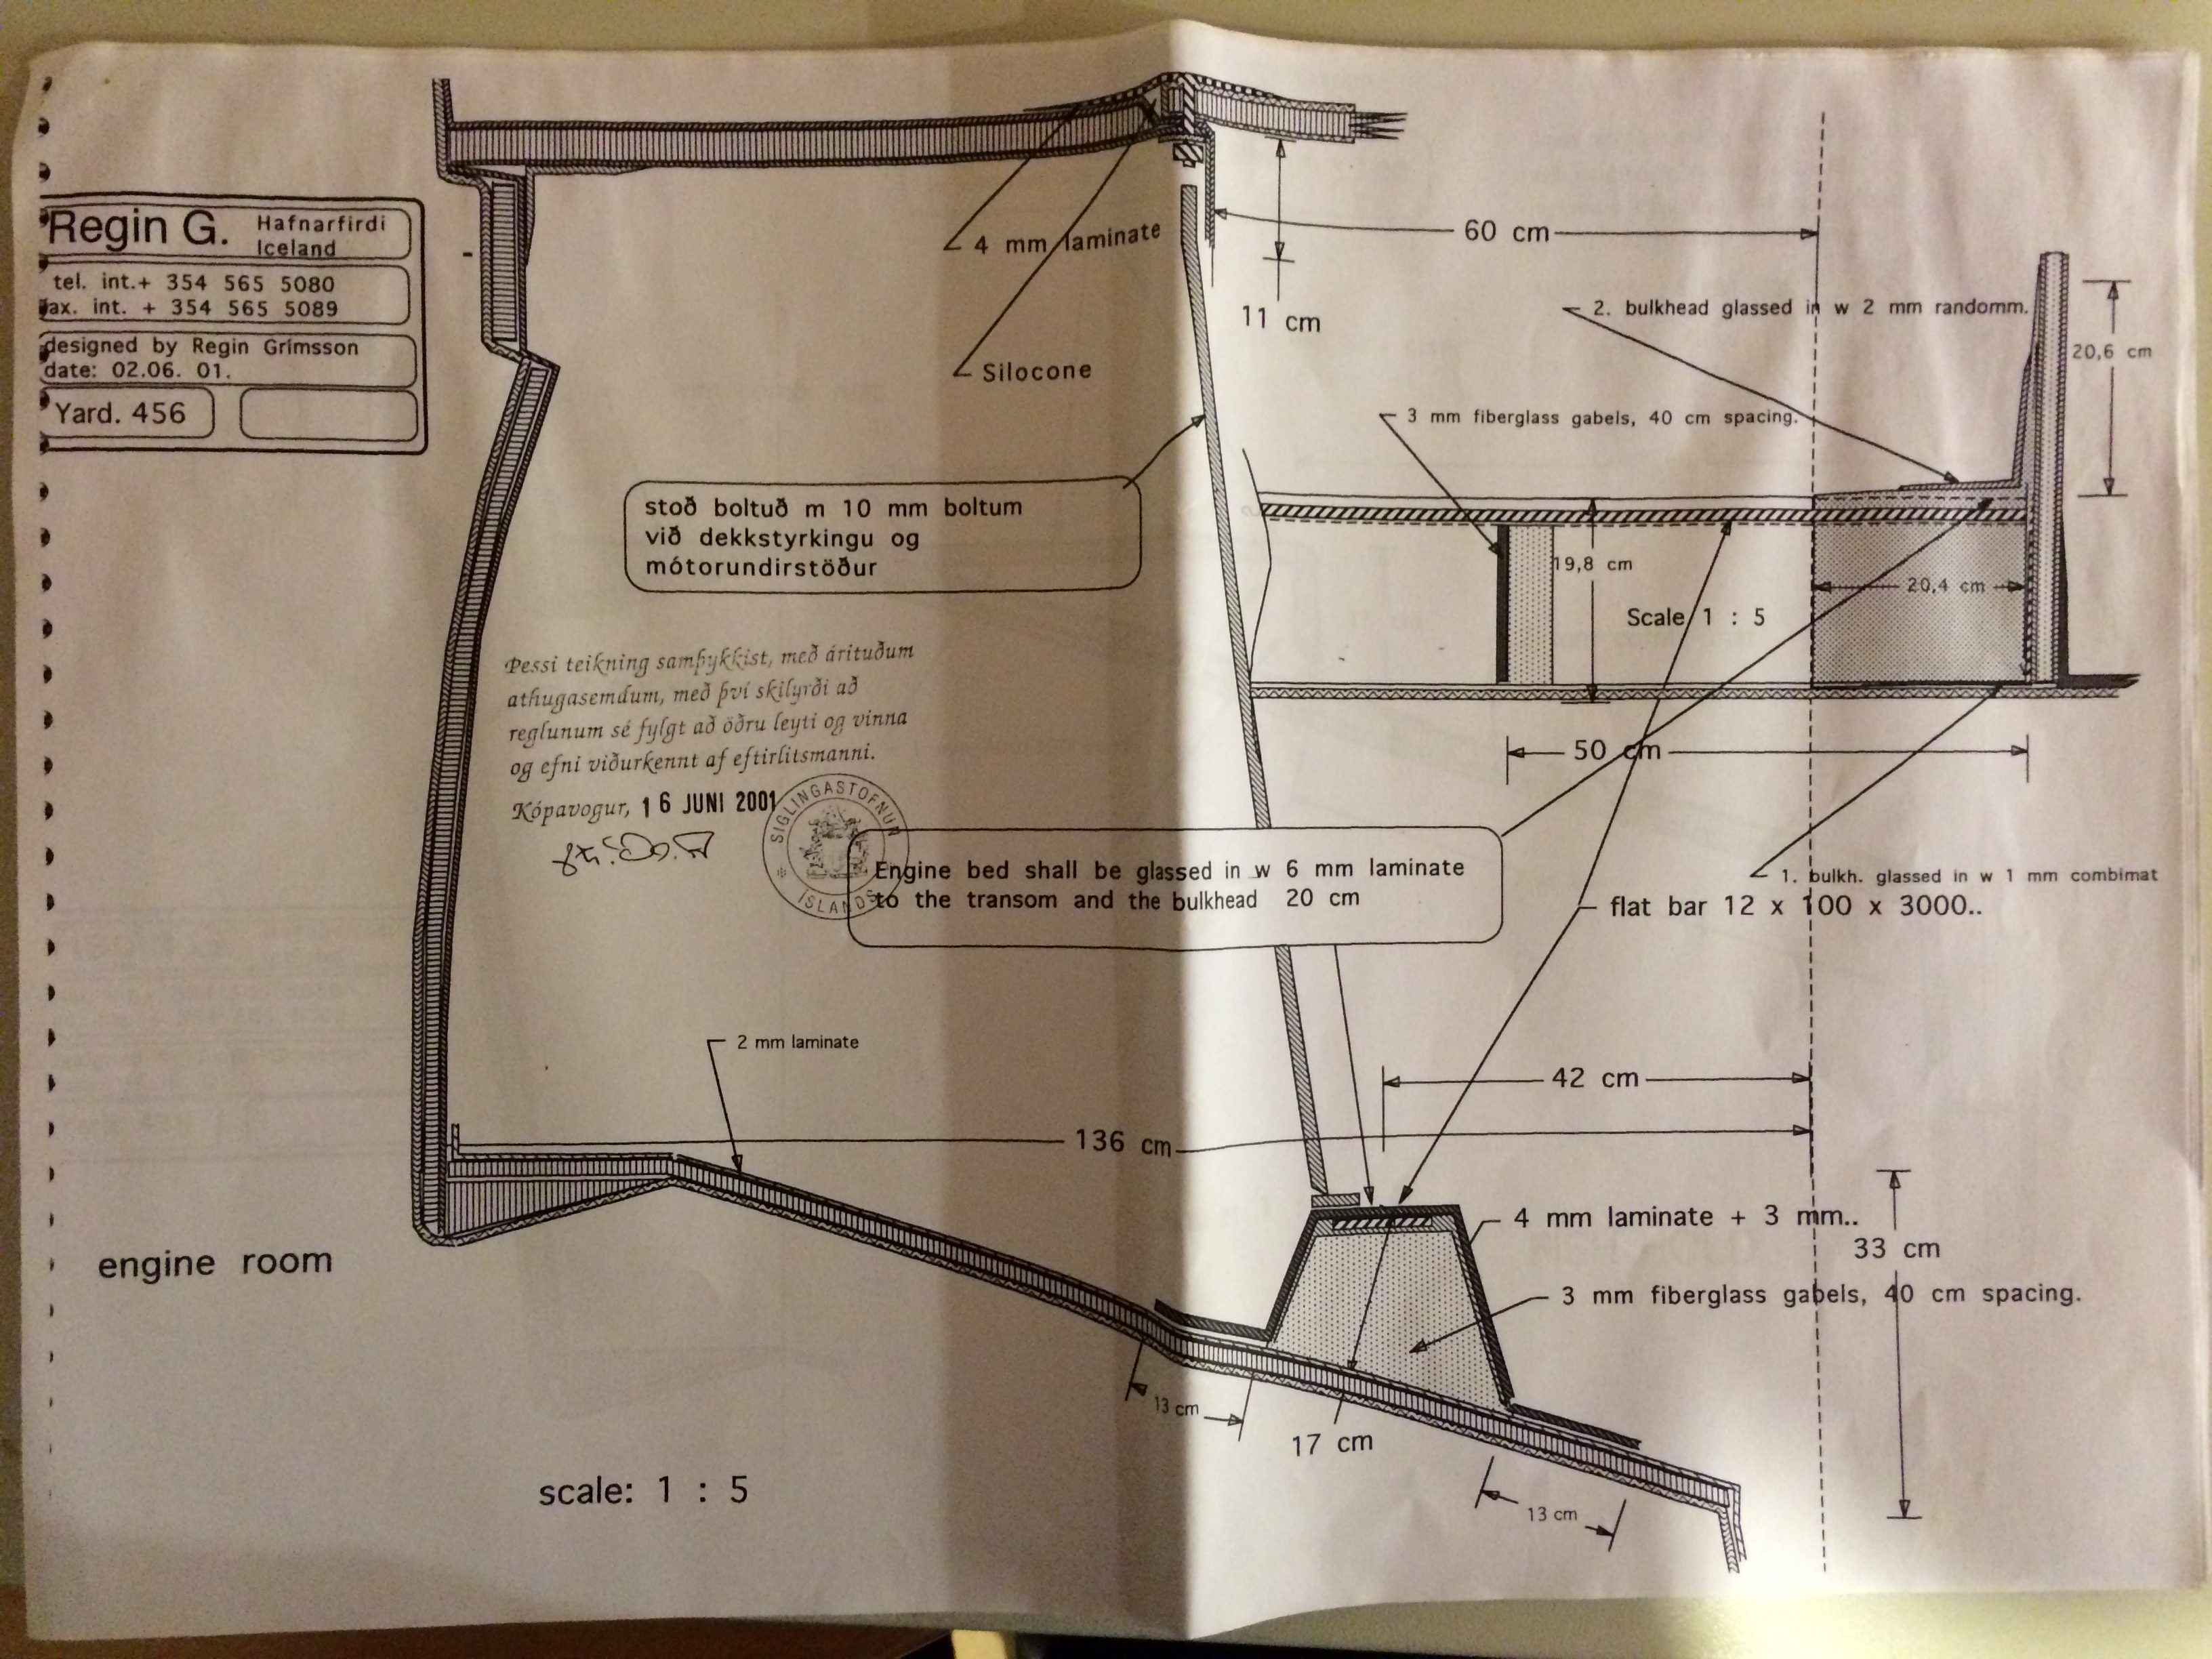 Regin G.
Hafnarfirdi
Iceland
tel. int.+ 354 565 5080
ax. int. + 354 565 5089
designed by Regin Grímsson
date: 02.06. 01.
Yard. 456
4 mm laminate
Silocone
60 cm
11 cm
2. bulkhead glassed in w 2 mm randomm.
20,6 cm
3 mm fiberglass gabels, 40 cm spacing.
stoð boltuð m 10 mm boltum
við dekkstyrkingu og
mótorundirstöður
19,8 cm
20,4 cm
Scale 1 : 5
50 cm
Þessi teikning samþykkist, með árituðum
athugasemdum, með því skilyrði að
reglunum sé fylgt að öðru leyti og vinna
og efni viðurkennt af eftirlitsmanni.
Kópavogur, 16 JUNI 2001
SIGLINGASTOFNUN
ÍSLANDS
Engine bed shall be glassed in w 6 mm laminate
to the transom and the bulkhead 20 cm
1. bulkh. glassed in w 1 mm combimat
flat bar 12 x 100 x 3000..
2 mm laminate
42 cm
136 cm
4 mm laminate + 3 mm..
33 cm
3 mm fiberglass gabels, 40 cm spacing.
engine room
13 cm
17 cm
13 cm
scale: 1 : 5